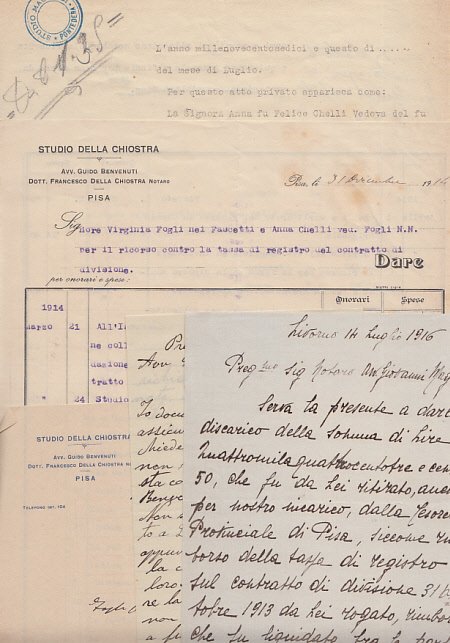 PONTEDERA
L'anno millenovecentosedici e questo dì ......
del mese di Luglio.
Per questo atto privato apparisce come:
La Signora Anna fu Felice Chelli Vedova del fu
STUDIO DELLA CHIOSTRA
AVV. GUIDO BENVENUTI
DOTT. FRANCESCO DELLA CHIOSTRA NOTARO
PISA
Pisa, lì 31 Dicembre 1914
Signore Virginia Fogli nei Fascetti e Anna Chelli ved. Fogli N.N.
per il ricorso contro la tassa di registro del contratto di
divisione.
Dare
per onorari e spese:
Onorari Spese
1914
marzo 21 All'I
ne coll
duazione
tratto
24 Studio
STUDIO DELLA CHIOSTRA
AVV. GUIDO BENVENUTI
DOTT. FRANCESCO DELLA CHIOSTRA
PISA
TELEFONO
Pre
Avv
Io
assicu
chiede
non
sta co
Benve
Non
to a
appun
la c
loro
re la
non
a fu
Livorno 14 Luglio 1916
Preg.mo Sig Notaro Avv Giovanni Mag
Serva la presente a dare
discarico della somma di Lire
Quattromilaquattrocentotre e cen
50, che fu da Lei ritirato, anc
per nostro incarico, dalla Tesore
Provinciale di Pisa, siccome rim
borso della tassa di registro
sul contratto di divisione 31
tobre 1913 da Lei rogato, rimbo
che fu liquidato